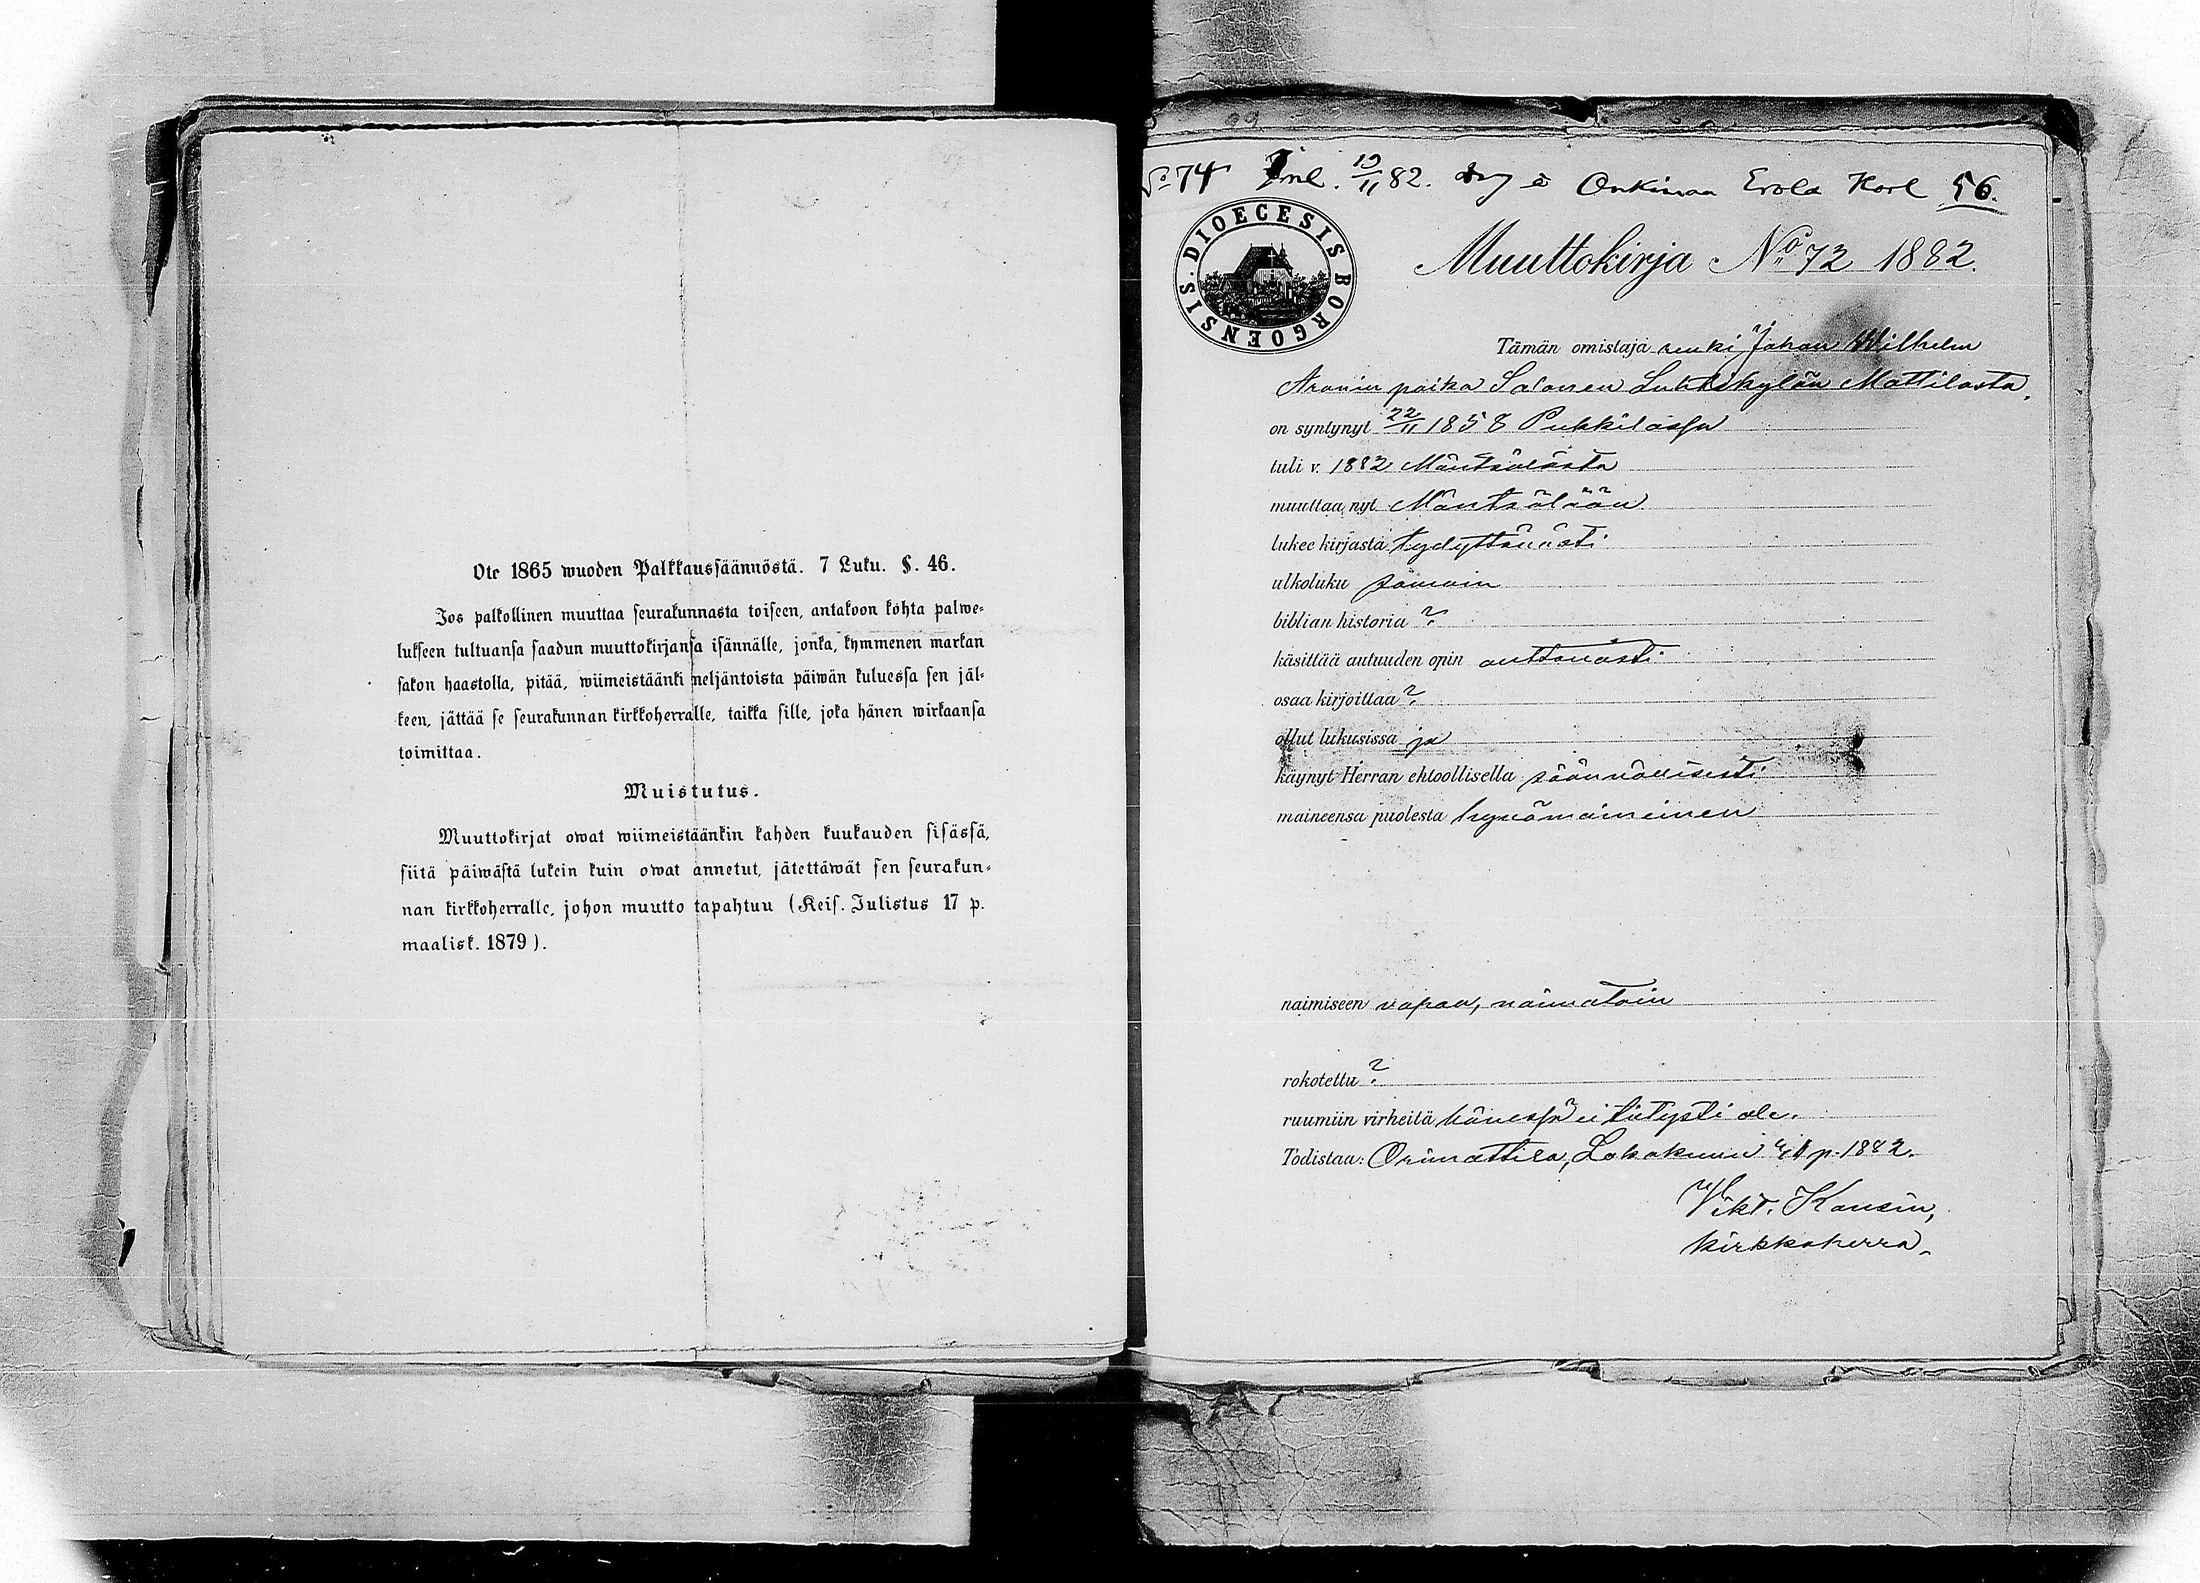 Ote 1865 wuoden Palkkaussäännöstä. 7 Luku. §. 46.
Jos palkollinen muuttaa seurakunnasta toiseen, antakoon kohta palwe-
lukseen tultuansa saadun muuttokirjansa isännälle, jonka, kymmenen markan
sakon haastolla, pitää, wiimeistäänki neljäntoista päiwän kuluessa sen jäl-
keen, jättää se seurakunnan kirkkoherralle, taikka sille, joka hänen wirkaansa
toimittaa.
Muistutus.
Muuttokirjat owat wiimeistäänkin kahden kuukauden sisässä,
siitä päiwästä lukein kuin owat annetut, jätettäwät sen seurakun-
nan kirkkoherralle, johon muutto tapahtuu (Keis. Julistus 17 p.
maalisk. 1879).
No 74 Inl. 10/11 82. Onkimaa Erola Karl 56.
DIOECESIS BORGOENSIS.
Muuttokirja No 72 1882.
Tämän omistaja renki Johan Wilhelm
Aronin poika Salonen Luhtikylän Mattilasta,
on syntynyt 22/11 1858 Pukkilassa
tuli v. 1882 Mäntsälästä
muuttaa nyt Mäntsälään
lukee kirjasta tydyttävästi
ulkoluku samoin
biblian historia ?
käsittää autuuden opin auttavasti
osaa kirjoittaa ?
ollut lukusissa ja
käynyt Herran ehtoollisella säännöllisesti
maineensa puolesta hyvämaineinen
naimiseen vapaa, naimatoin
rokotettu ?
ruumiin virheitä hänessä ei tietysti ole.
Todistaa: Orimattila, Lokakuun p. 1882.
Vikt. Kansin,
kirkkoherra.